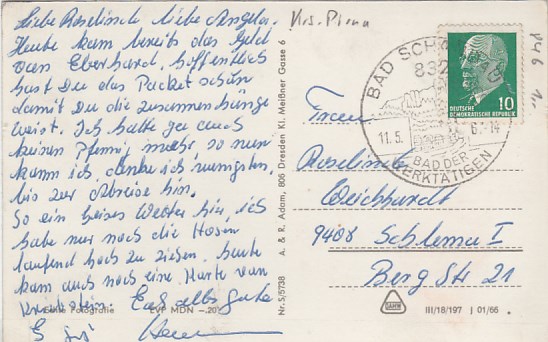 Liebe Roselinde liebe Angela.
Heute kam bereits das Geld
von Eberhard, hoffentlich
hast Du das Packet schon
damit Du die zusammenhänge
weist. Ich hatte ja auch
keinen Pfennig mehr so nun
kann ich, denke ich wenigsten,
bis zur Abreise hin.
So ein heises Wetter hier, ich
habe nur noch die Hosen
laufend hoch zu ziehen. heute
kam auch noch eine Karte von
Euch alles gute
Echte Fotografie EVP MDN –.20
Krs. Pirna
Nr. S/5738 A. & R. Adam, 806 Dresden, Kl. Meißner Gasse 6
BAD
832
11.5. 6.-14
BAD DER
WERKTÄTIGEN
DEUTSCHE
DEMOKRATISCHE REPUBLIK
10
Roselinde
Weichhardt
9408 Schlema I
Berg Str 21
III/18/197 J 01/66